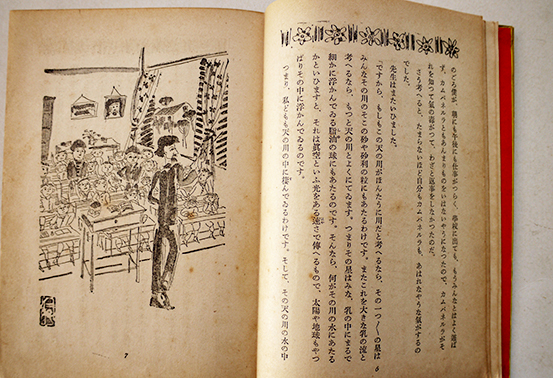 のごろ僕が、朝にも午後にも仕事がつらく、學校に出ても、もうみんなとはよく遊ば
ず、カムパネルラともあんまりものをいはないやうになつたので、カムパネルラがそ
れを知つて氣の毒がつて、わざと返事をしなかつたのだ、
さう考へると、たまらないほど自分もカムパネルラも、あはれなやうな氣がするの
でした。
先生はまたいひました。
「ですから、もしもこの天の川がほんたうに川だと考へるなら、その一つ〱の星は
みんなその川のそこの砂や砂利の粒にもあたるわけです。またこれを大きな乳の流と
考へるなら、もつと天の川とよくにてゐます。つまりその星はみな、乳の中にまるで
細かに浮かんでゐる脂油の球にもあたるのです。そんなら、何がその川の水にあたる
かといひますと、それは眞空といふ光をある速さで傳へるもので、太陽や地球もやつ
ぱりその中に浮かんでゐるのです。
つまり、私どもも天の川の中に棲んでゐるわけです。そして、その天の川の水の中
6
7